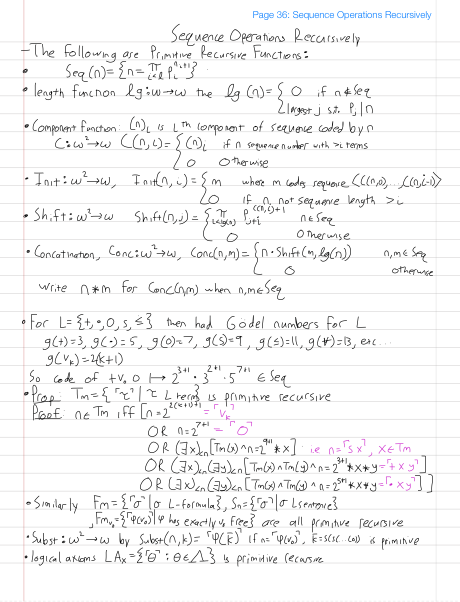 Page 36: Sequence Operations Recursively
Sequence Operations Recursively
- The following are Primitive Recursive Functions:
• Seq(n) = {n = ∏_{i<l} P_i^{n_i+1}}
• length function lg: ω→ω the lg(n) = { 0 if n∉Seq
largest j s.t. P_j | n
• Component function: (n)_i is i^th component of sequence coded by n
C: ω²→ω C(n,i) = { (n)_i if n sequence number with >i terms
0 Otherwise
• Init: ω²→ω, Init(n,i) = { m where m codes sequence (C(n,0), ... C(n,i-1))
0 if n not sequence length > i
• Shift: ω²→ω Shift(n,j) = { ∏_{i<lg(n)} P_{j+i}^{C(n,i)+1} n∈Seq
0 Otherwise
• Concatination, Conc: ω²→ω, Conc(n,m) = { n · Shift(m, lg(n)) n,m∈Seq
0 otherwise
Write n*m for Conc(n,m) when n,m∈Seq
• For L = {+, ·, 0, s, ≤} then had Gödel numbers for L
g(+)=3, g(·)=5, g(0)=7, g(s)=9, g(≤)=11, g(∀)=13, exc...
g(V_k) = 2(k+1)
So code of +v₀0 ↦ 2^{3+1} · 3^{2+1} · 5^{7+1} ∈ Seq
• Prop: Tm = {⌜τ⌝ | τ L term} is primitive recursive
Proof: n∈Tm iff [n = 2^{2(k+1)+1} = ⌜V_k⌝
OR n = 2^{7+1} = ⌜0⌝
OR (∃x)_{<n} [Tm(x) ∧ n = 2^{9+1} * x] i.e n = ⌜s x⌝, x∈Tm
OR (∃x)_{<n} (∃y)_{<n} [Tm(x) ∧ Tm(y) ∧ n = 2^{3+1} * x * y = ⌜+ x y⌝]
OR (∃x)_{<n} (∃y)_{<n} [Tm(x) ∧ Tm(y) ∧ n = 2^{5+1} * x * y = ⌜· x y⌝]]
• Similarly Fm = {⌜σ⌝ | σ L-formula}, Sn = {⌜σ⌝ | σ L sentence}
, Fm_{v₀} = {⌜φ(v₀)⌝ | φ has exactly v₀ free} are all primitive recursive
• Subst: ω²→ω by Subst(n,k) = ⌜φ(k̄)⌝ if n = ⌜φ(v₀)⌝, k̄ = s(s(...(0)) is primitive
• logical axioms LAx = {⌜θ⌝ : θ∈Λ} is primitive recursive